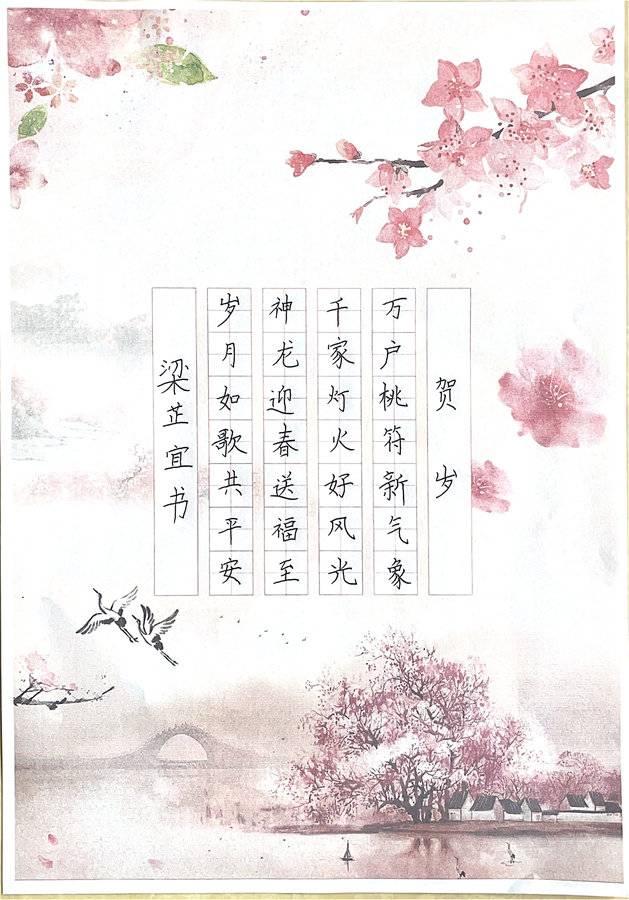 贺岁
万户桃符新气象
千家灯火好风光
神龙迎春送福至
岁月如歌共平安
梁芷宜书